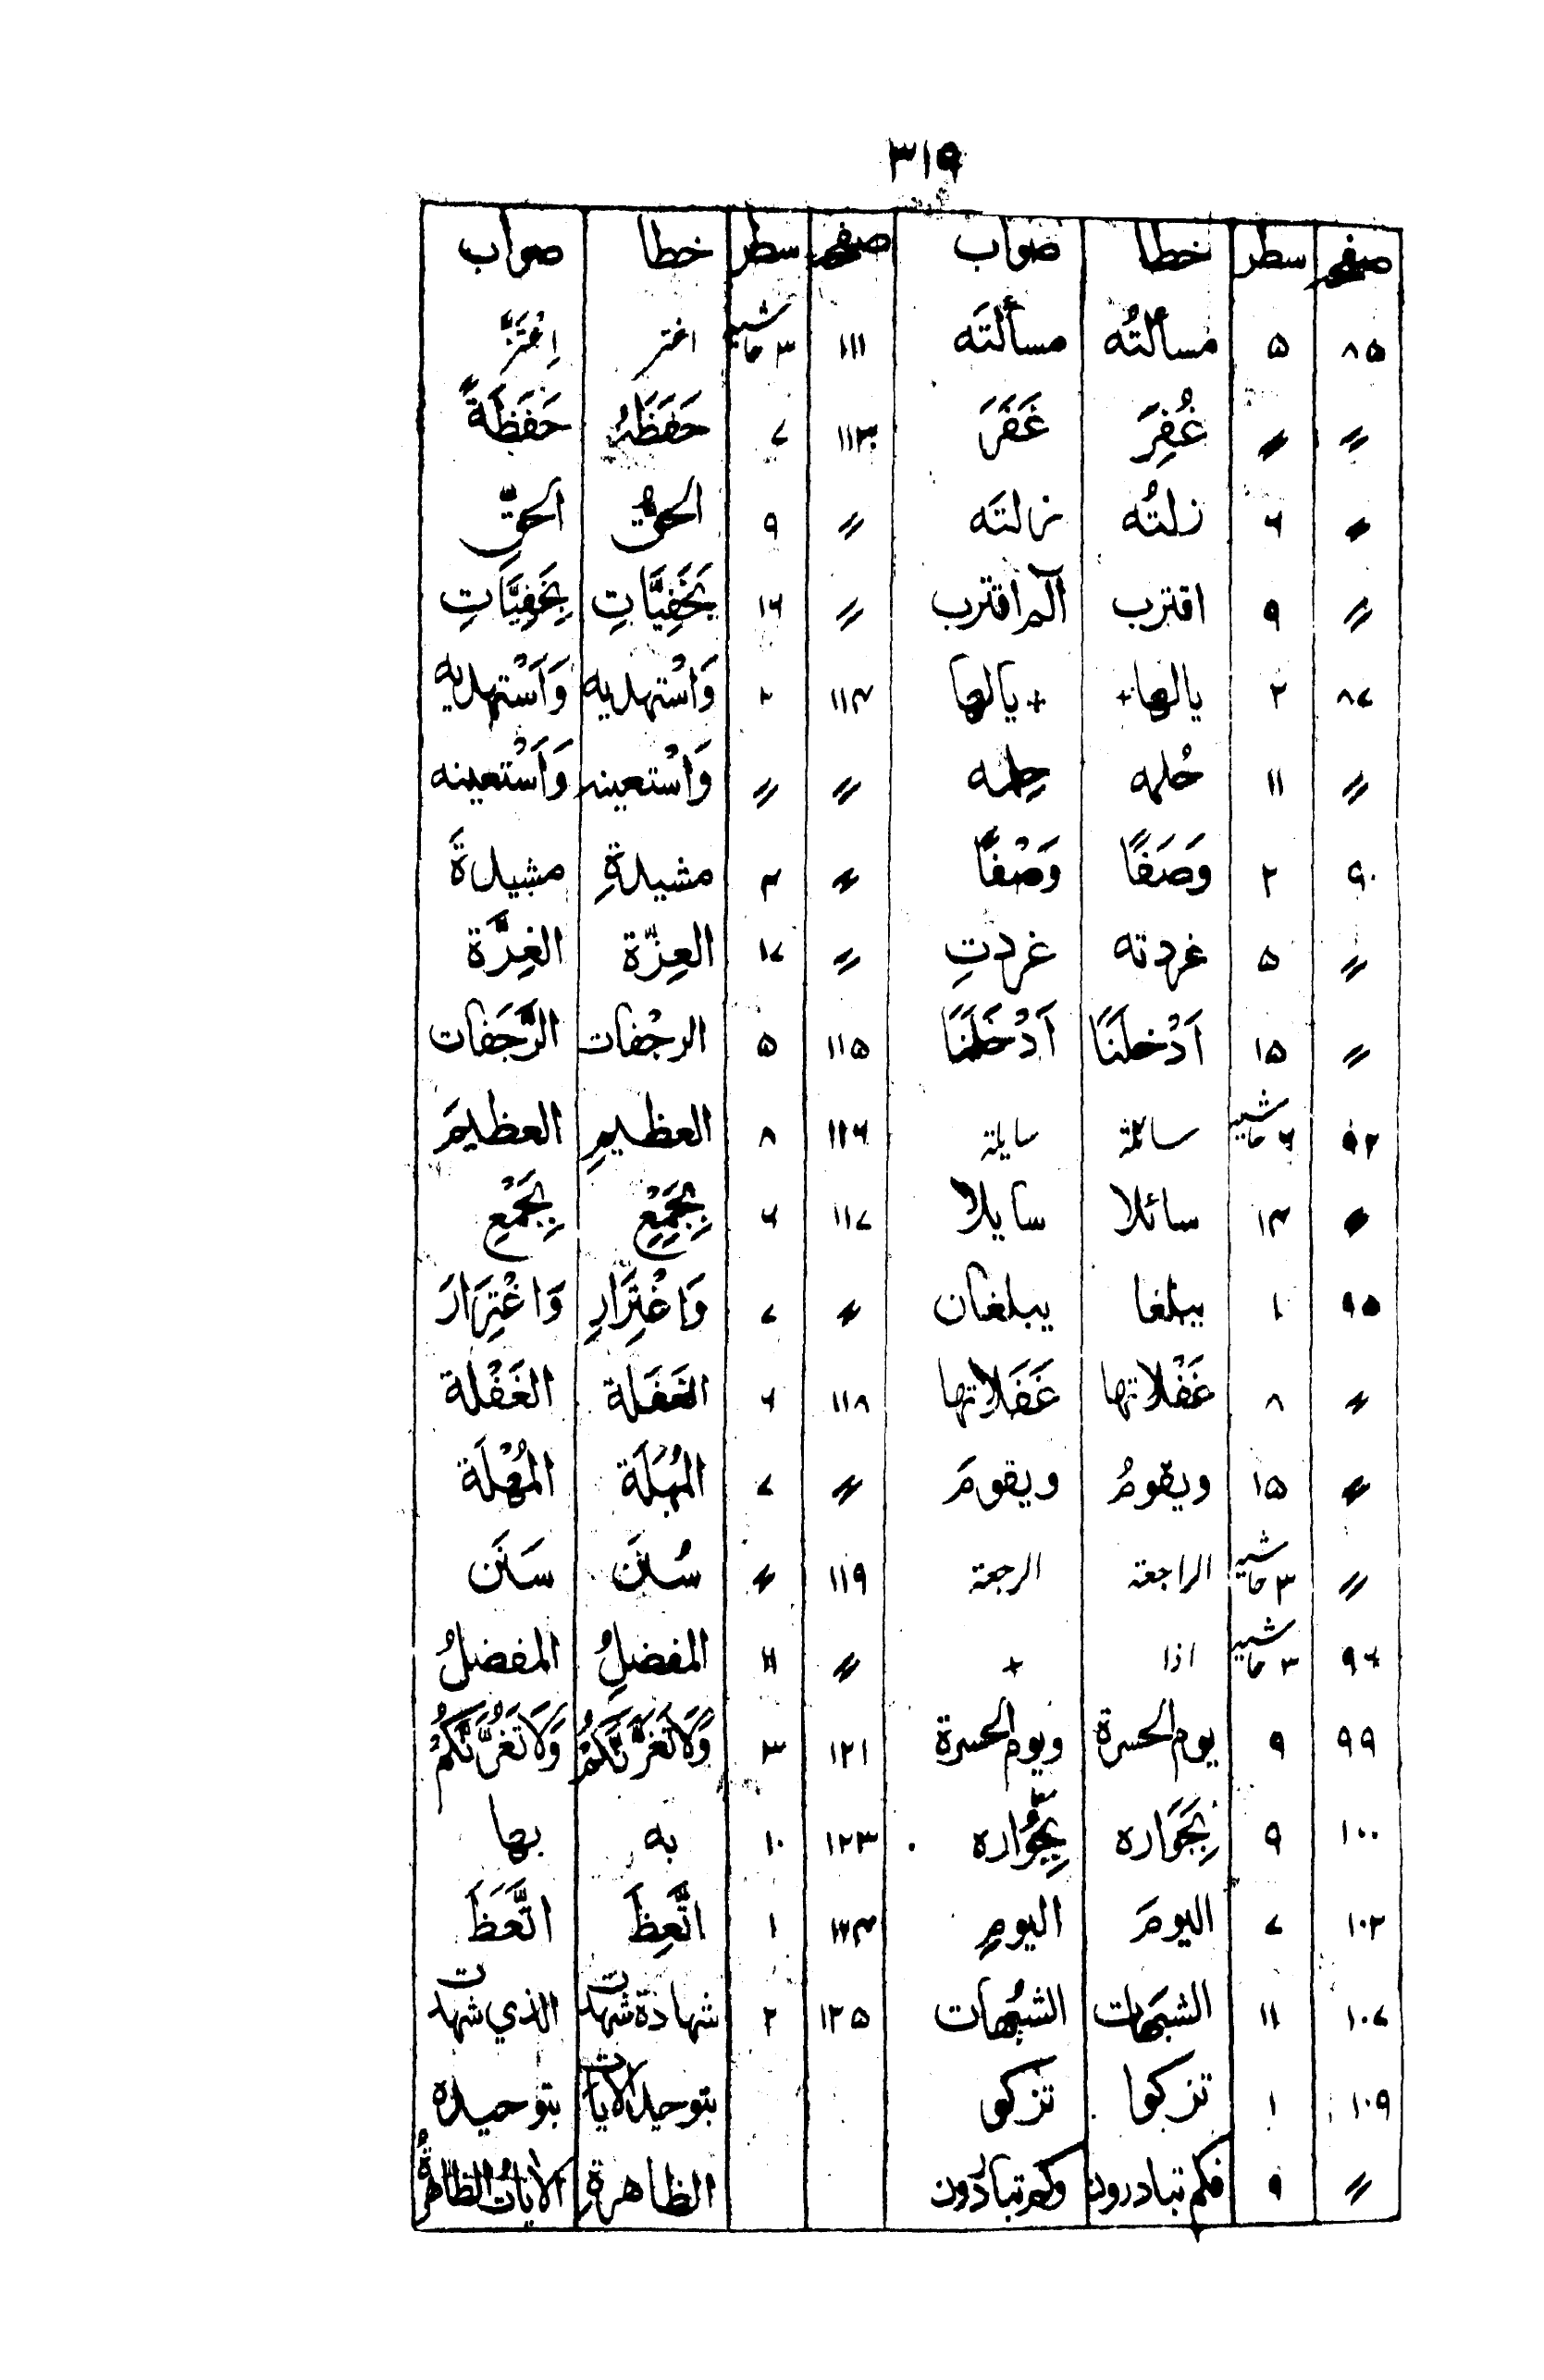 ٣١٩
صفحہ سطر خطا صواب صفحہ سطر خطا صواب
٨٥ ٥ مسألتُه مسألتَه ١١١ ٣ حاشیہ اغتر اِغْتَرَّ
〃 〃 غُفِرَ غَفَرَ ١١٣ ٧ حَفَظَہُ حَفَظَةً
〃 ٦ زلتُه زلتَه 〃 ٩ الحقُّ الحقِّ
〃 ٩ اقترب الٓم اقترب 〃 ١٦ بَخَفِيَّاتِ بِخَفِيَّاتِ
٨٧ ٢ يالها+ +يالها ١١٤ ٢ وَاسْتهديه وَاَسْتهديه
〃 ١١ حُلمه حِلمه 〃 〃 وَاسْتعينه وَاَسْتعينه
٩٠ ٢ وَصَفًا وَصْفًا 〃 ٤ مشيدةِ مشيدةً
〃 ٥ غردته غردتِ 〃 ١٧ العِزّة الغِرَّة
〃 ١٥ اَدْخلَنَا اَدْخَلَنَا ١١٥ ٥ الرجْفات الرَّجَفات
٩٢ ٦ حاشیہ سائلة سايلة ١١٦ ٨ العظيمِ العظيمَ
〃 ١٤ سائلا سايلا ١١٧ ٦ بِجَمِيْعِ بِجَمْعِ
٩٥ ١ يبلغا يبلغان 〃 ٧ وَاغْتِرَارِ وَاغْتِرَارَ
〃 ٨ غَفْلاتها غَفَلاتها ١١٨ ٦ الغَفَلة الغَفْلة
〃 ١٥ ويقومُ ويقومَ 〃 ٧ المُهَلَة المُهْلَة
〃 ٣ حاشیہ الراجعة الرجعة ١١٩ 〃 سُنَن سَنَن
٩٦ ٣ حاشیہ اذا + 〃 ١١ المفضلِ المفضلُ
٩٩ ٩ يوم الحسرة ويوم الحسرة ١٢١ ٣ وَلَا تَغَرَّنَّكُمُ وَلَا تَغُرَّنَّكُمُ
١٠٠ ٩ بِجَوَاره بِجِوَاره ١٢٣ ١٠ به بها
١٠٢ ٧ اليومَ اليومِ ١٢٤ ١ اتَّعِظَ اتَّعَظَ
١٠٧ ١١ الشبَهات الشبُهات ١٢٥ ٢ شهادة شهدت الذي شهدت
١٠٩ ١ تزكوا تزكو بتوحيد الآيات بتوحيده
〃 ٩ فكم تبادرون وكم تبادرون الظاهرةِ الآياتُ الظاهرةُ